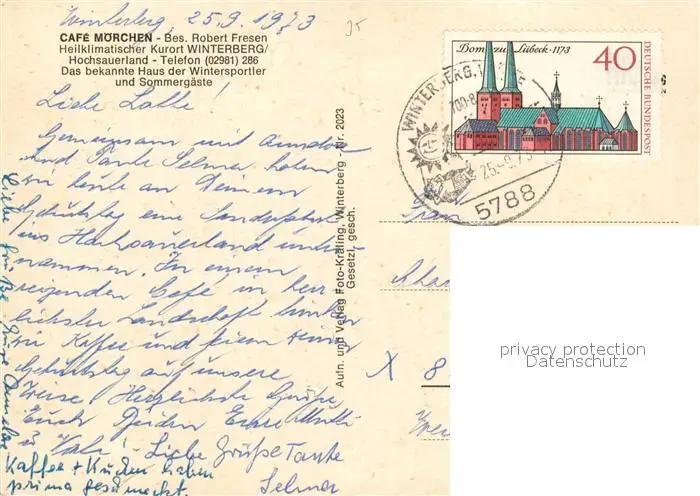 Winterberg, 25.9.1973
CAFÉ MÖRCHEN - Bes. Robert Fresen
Heilklimatischer Kurort WINTERBERG/
Hochsauerland - Telefon (02981) 286
Das bekannte Haus der Wintersportler
und Sommergäste
Liebe Lotte!
Gemeinsam mit
und Tante Selma haben
wir heute an Deinem
Geburtstag eine Sonderfahrt
ins Hochsauerland unter-
nommen. In einem
reizenden Café in herr-
lichster Landschaft trinken
wir Kaffee und feiern
Geburtstag auf unsere
Weise Herzlichste Grüße
Euch Beiden Eure Mutti
u. - Liebe Grüße Tante
Selma
Kaffee + Kuchen haben
prima geschmeckt.
Liebe Grüße
Aufn. und Verlag Foto-Kräling, Winterberg - Nr. 2023
Gesetzl. gesch.
Dom zu Lübeck · 1173
40
DEUTSCHE BUNDESPOST
WINTERBERG,
25.-9.73
5788
X 8
privacy protection
Datenschutz